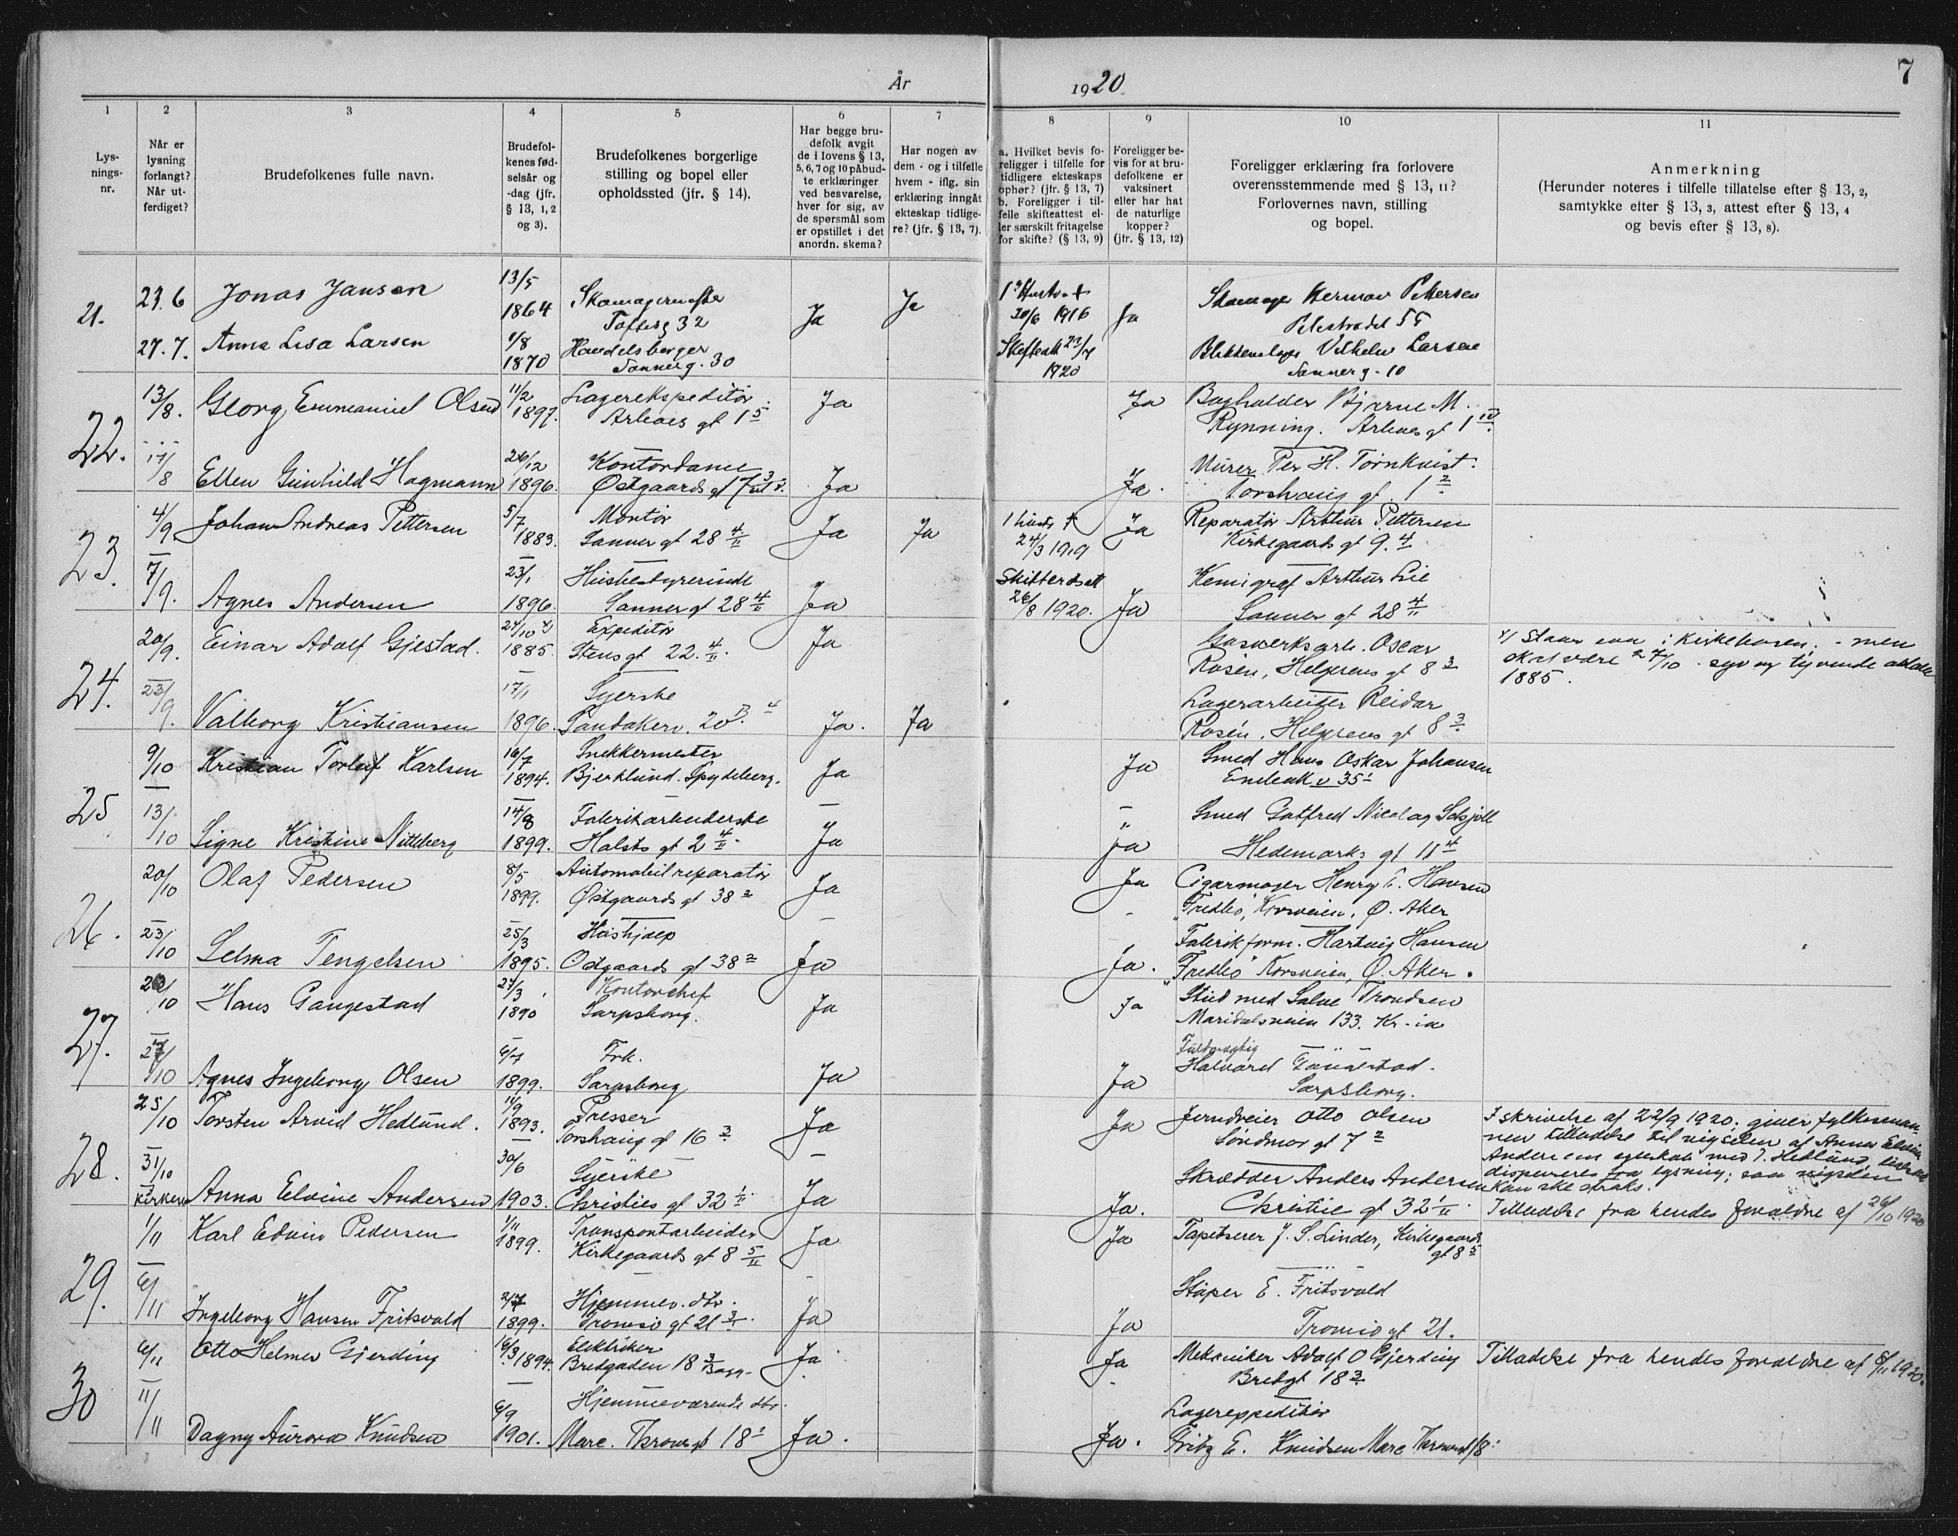 År 1920
7
1 2 3 4 5 6 7 8 9 10 11
Lys-
nings-
nr.
Når er
lysning
forlangt?
Når ut-
ferdiget?
Brudefolkenes fulle navn.
Brudefol-
kenes fød-
selsår og
-dag (jfr.
§ 13, 1, 2
og 3).
Brudefolkenes borgerlige
stilling og bopel eller
opholdssted (jfr. § 14).
Har begge bru-
defolk avgit
de i lovens § 13,
5, 6, 7 og 10 påbud-
te erklæringer
ved besvarelse,
hver for sig, av
de spørsmål som
er opstillet i det
anordn. skema?
Har nogen av
dem - og i tilfelle
hvem - iflg. sin
erklæring inngåt
ekteskap tidlige-
re? (jfr. § 13, 7).
a. Hvilket bevis fo-
religger i tilfelle for
tidligere ekteskaps
ophør? (jfr. § 13, 7)
b. Foreligger i til-
felle skifteattest el-
ler særskilt fritagelse
for skifte? (§ 13, 9)
Foreligger be-
vis for at bru-
defolkene er
vaksinert
eller har hat
de naturlige
kopper?
(jfr. § 13, 12)
Foreligger erklæring fra forlovere
overensstemmende med § 13, 11?
Forlovernes navn, stilling
og bopel.
Anmerkning
(Herunder noteres i tilfelle tillatelse efter § 13, 2,
samtykke efter § 13, 3, attest efter § 13, 4
og bevis efter § 13, 8).
21. 23.6 Jonas Jansen 13/5 1864 Skomagermester Toftesg 32 Ja Ja
1ste Hustru + 20/6 1916 Ja Skomager Herman Pettersen
Pilestrædet 55
27.7. Anna Lisa Larsen 1/8 1870 Handelsborger Sannerg. 30
Skifteatt 23/7 1920 Vilhelm Larsen
Sannerg. 10
22. 13/8. Georg Emmanuel Olsen 11/2 1897. Lagerekspeditør Ja
Arboes gt 1 5
Ja Bogholder Bjarne M.
Rynning. Arboes gt 1
17/8 Ellen Gunhild Hagmann 26/12 1896. Kontordame Østgaards gt 17 Ja
Ja. Murer Per H. Törnkvist.
Torshaug gt. 1 2
23. 4/9 Johan Andreas Pettersen 5/7 1883. Montør
Sanner gt 28 4/II Ja Ja
1 hustr + 24/3 1919 Ja Reparatør Arthur Pettersen
Kirkegaards gt 9. 4
7/9. Agnes Andersen 23/1 1896. Husbestyrerinde
Sanner gt 28 4/II Ja
Skifteratt 26/8 1920. Ja Kemigraf Arthur Lie
Sanner gt 28 4/II
24. 20/9. Einar Adolf Gjestad. 27/10 x) 1885. Expeditør
Stens gt 22. 4/II. Ja
Gasverksarb. Oscar
Rosén, Helgesens gt 8 3
x) Staar saa i kirkeboken; - men
skal være 27/10 - syv og tyvende oktober
1885.
23/9. Valborg Kristiansen 17/1 1896. Syerske
Sandakerv. 20 B. 4 Ja. Ja
Lagerarbeider Reidar
Rosén, Helgesens gt 8 3
25 9/10 Kristian Torleif Karlsen 16/7 1894. Snekkermester
Bjerklund. Spydeberg. Ja
Ja Smed Hans Oskar Johansen
Enebak v 35 1
13/10 Signe Kristine Nitteberg 14/8 1899. Fabrikarbeiderske
Holsts gt 2 4/II. Ja
Ja Smed Gotfred Nicolay
Hedemarks gt 11 4
26. 20/10 Olaf Pedersen 8/5 1899. Automobilreparatør
Østgaards gt 38 2 Ja
Ja Cigarmager Henry E. Hansen
"Fredbo", Korsveien, Ø. Aker
23/10 Selma Tengelsen 25/3 1895. Hushjælp
Østgaards gt 38 2 Ja
Ja. Fabrikform. Hartvig Hansen
"Fredbo" Korsveien, Ø. Aker.
27. 20/10 Hans Gangestad 27/3 1890 Kontorchef
Sarpsborg. Ja
Ja Stud med Salve Trondsen
Maridalsveien 133. Kr-ia
27/10 Agnes Ingeborg Olsen 6/7 1899. Frk.
Sarpsborg Ja
Ja Fuldmægtig
Halvard Gangestad.
Sarpsborg.
28. 25/10 Torsten Arvid Hedlund. 11/9 1893. Presser
Torshaug gt 16 3 Ja
Ja Jerndreier Otto Olsen
Söndmør gt 7 2
I skrivelse af 22/9 1920. giver fylkesman-
nen tilladelse til vigselen af Anna Elvine
Andersens egteskab med T. Hedlund,
dispenseres fra lysning; saa vigselen
kan ske straks.
31/10 Kirken Anna Elvine Andersen 30/6 1903. Syerske
Christies gt 32 1/II. Ja
Ja. Skrædder Anders Andersen
Christie gt 32 1/II.
Tilladelse fra hendes forældre af 26/10 1920
29. 1/11 Karl Edvin Pedersen 1/11 1899. Transportarbeider
Kirkegaards gt 8 5/II Ja
Ja Tapetserer J. S. Linder, Kirkegaards
gt 8 5
6/11 Ingeborg Hansen Fritsvold 2/7 1899. Hjemmev. dtr.
Tromsö gt 21 3. Ja
Ja Støper E. Fritsvold
Tromsö gt 21.
30 6/11 Otto Helmer Gjerding 16/3 1894. Elektriker
Bredgaden 18 3 Ja
Ja Mekaniker Adolf O Gjerding
Bredgt 18 3.
Tilladelse fra hendes forældre af 8/11 1920.
11/11 Dagny Aurora Knudsen 6/9 1901. Hjemmeværende dtr.
Marc. Thranesgt 18 1 Ja.
Ja. Lagerexpeditör
Fritz E. Knudsen Marc Thranesgt 18